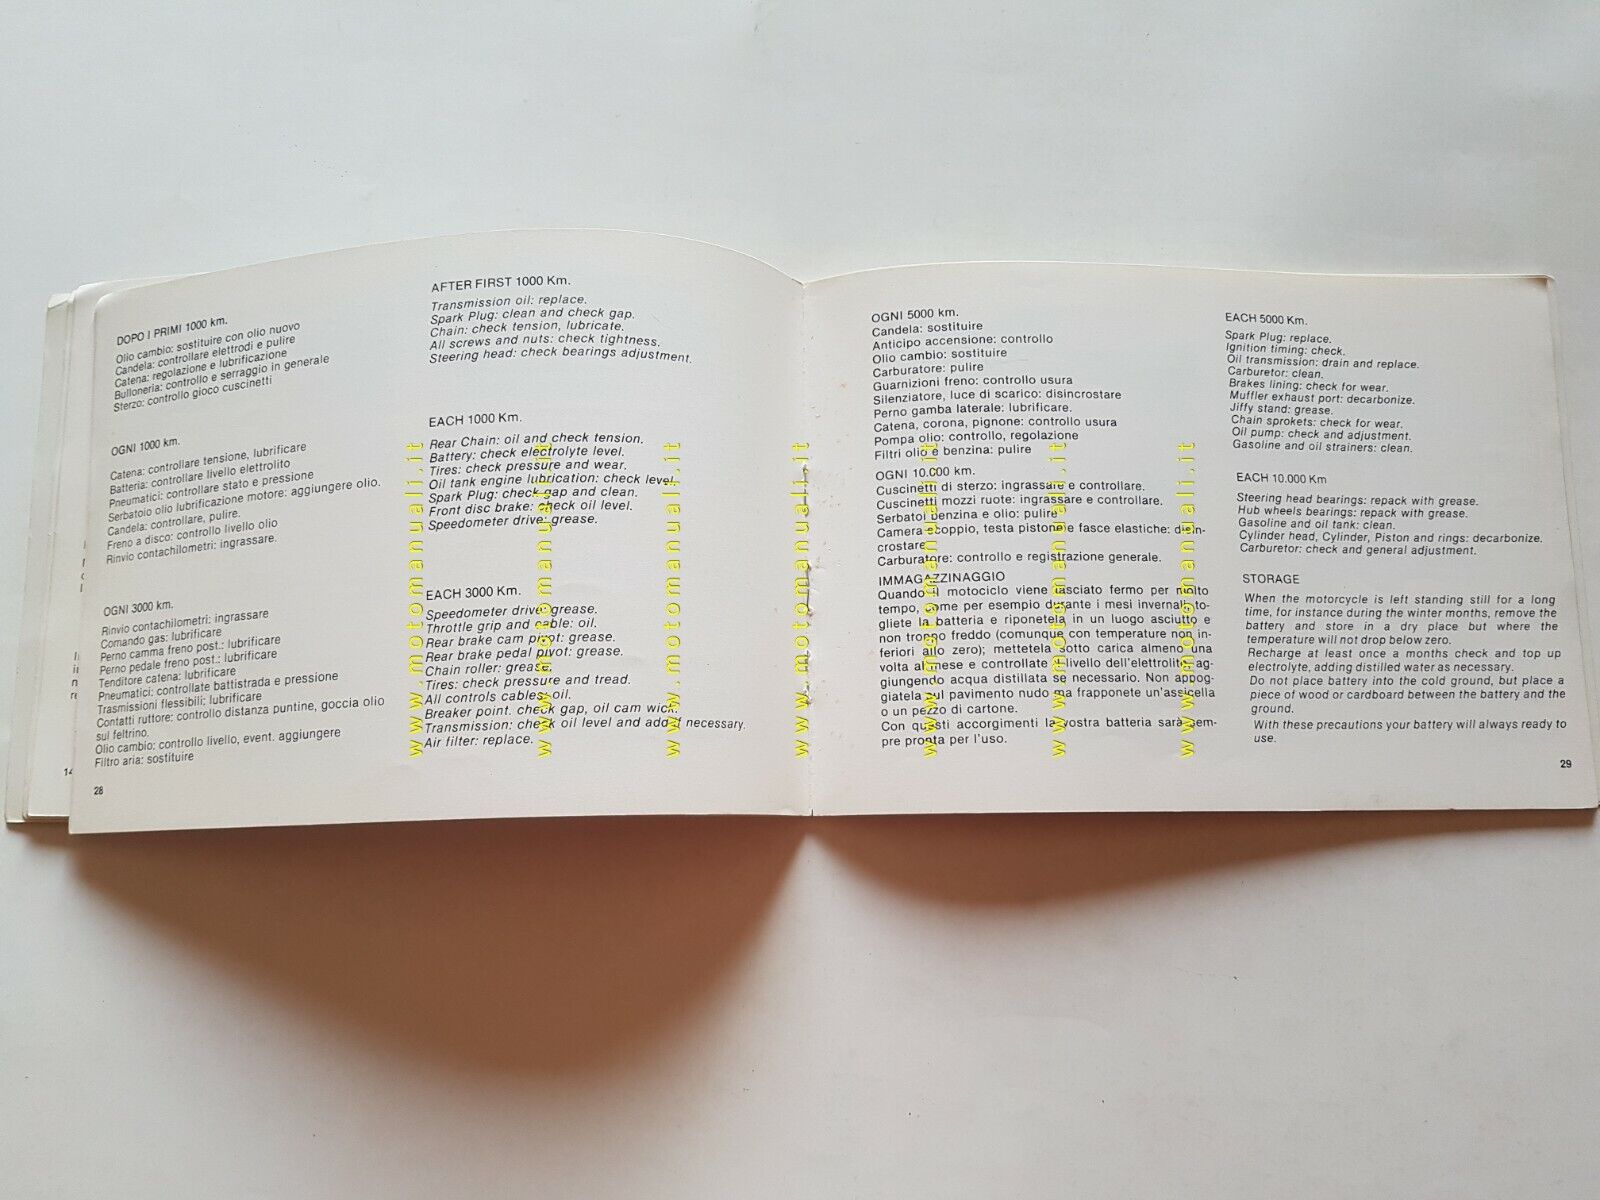 DOPO I PRIMI 1000 km.
Olio cambio: sostituire con olio nuovo
Candela: controllare elettrodi e pulire
Catena: regolazione e lubrificazione
Bulloneria: controllo e serraggio in generale
Sterzo: controllo gioco cuscinetti
OGNI 1000 km.
Catena: controllare tensione, lubrificare
Batteria: controllare livello elettrolito
Pneumatici: controllare stato e pressione
Serbatoio olio lubrificazione motore: aggiungere olio.
Candela: controllare, pulire.
Freno a disco: controllo livello olio
Rinvio contachilometri: ingrassare.
OGNI 3000 km.
Rinvio contachilometri: ingrassare
Comando gas: lubrificare
Perno camma freno post.: lubrificare
Perno pedale freno post.: lubrificare
Tenditore catena: lubrificare
Pneumatici: controllate battistrada e pressione
Trasmissioni flessibili: lubrificare
Contatti ruttore: controllo distanza puntine, goccia olio
sul feltrino.
Olio cambio: controllo livello, event. aggiungere
Filtro aria: sostituire
28
AFTER FIRST 1000 Km.
Transmission oil: replace.
Spark Plug: clean and check gap.
Chain: check tension, lubricate.
All screws and nuts: check tightness.
Steering head: check bearings adjustment.
EACH 1000 Km.
Rear Chain: oil and check tension.
Battery: check electrolyte level.
Tires: check pressure and wear.
Oil tank engine lubrication: check level.
Spark Plug: check gap and clean.
Front disc brake: check oil level.
Speedometer drive: grease.
EACH 3000 Km.
Speedometer drive: grease.
Throttle grip and cable: oil.
Rear brake cam pivot: grease.
Rear brake pedal pivot: grease.
Chain roller: grease.
Tires: check pressure and tread.
All controls cables: oil.
Breaker point. check gap, oil cam wick.
Transmission: check oil level and add if necessary.
Air filter: replace.
OGNI 5000 km.
Candela: sostituire
Anticipo accensione: controllo
Olio cambio: sostituire
Carburatore: pulire
Guarnizioni freno: controllo usura
Silenziatore, luce di scarico: disincrostare
Perno gamba laterale: lubrificare.
Catena, corona, pignone: controllo usura
Pompa olio: controllo, regolazione
Filtri olio e benzina: pulire
OGNI 10.000 km.
Cuscinetti di sterzo: ingrassare e controllare.
Cuscinetti mozzi ruote: ingrassare e controllare.
Serbatoi benzina e olio: pulire
Camera scoppio, testa pistone e fasce elastiche: disin-
crostare
Carburatore: controllo e registrazione generale.
IMMAGAZZINAGGIO
Quando il motociclo viene lasciato fermo per molto
tempo, come per esempio durante i mesi invernali to-
gliete la batteria e riponetela in un luogo asciutto e
non troppo freddo (comunque con temperature non in-
feriori allo zero); mettetela sotto carica almeno una
volta al mese e controllate il livello dell'elettrolito ag-
giungendo acqua distillata se necessario. Non appog-
giatela sul pavimento nudo ma frapponete un'assicella
o un pezzo di cartone.
Con questi accorgimenti la vostra batteria sarà sem-
pre pronta per l'uso.
EACH 5000 Km.
Spark Plug: replace.
Ignition timing: check.
Oil transmission: drain and replace.
Carburetor: clean.
Brakes lining: check for wear.
Muffler exhaust port: decarbonize.
Jiffy stand: grease.
Chain sprokets: check for wear.
Oil pump: check and adjustment.
Gasoline and oil strainers: clean.
EACH 10.000 Km
Steering head bearings: repack with grease.
Hub wheels bearings: repack with grease.
Gasoline and oil tank: clean.
Cylinder head, Cylinder, Piston and rings: decarbonize.
Carburetor: check and general adjustment.
STORAGE
When the motorcycle is left standing still for a long
time, for instance during the winter months, remove the
battery and store in a dry place but where the
temperature will not drop below zero.
Recharge at least once a months check and top up
electrolyte, adding distilled water as necessary.
Do not place battery into the cold ground, but place a
piece of wood or cardboard between the battery and the
ground.
With these precautions your battery will always ready to
use.
29
14
www.motomanuali.it
www.motomanuali.it
www.motomanuali.it
www.motomanuali.it
www.motomanuali.it
www.motomanuali.it
www.motomanuali.it